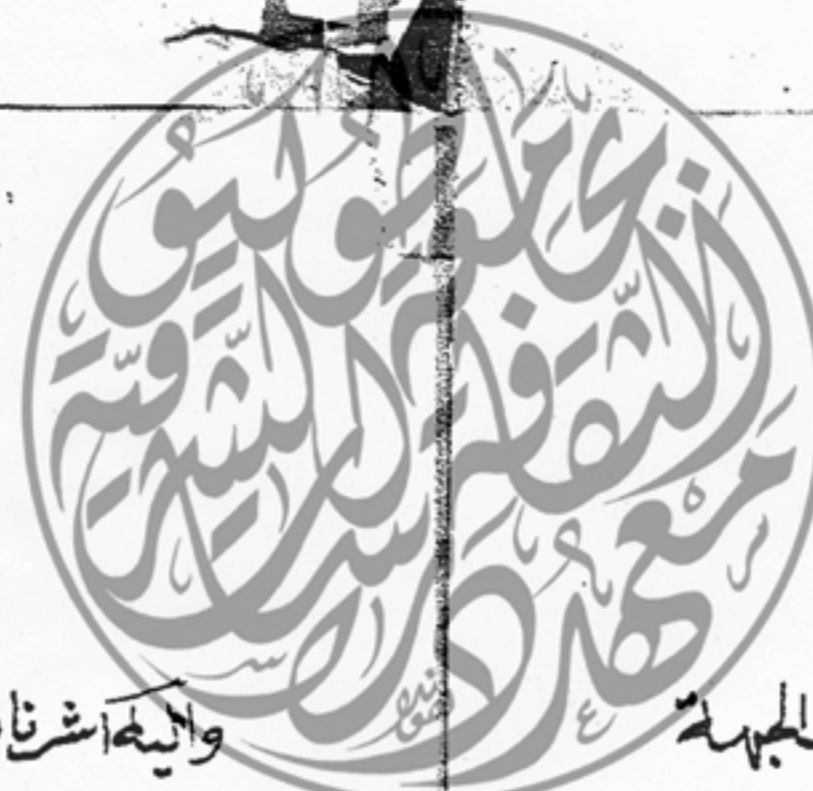 معهد دراسات
الثقافة الشرقية
بجامعة طوكيو
واليه اشرنا